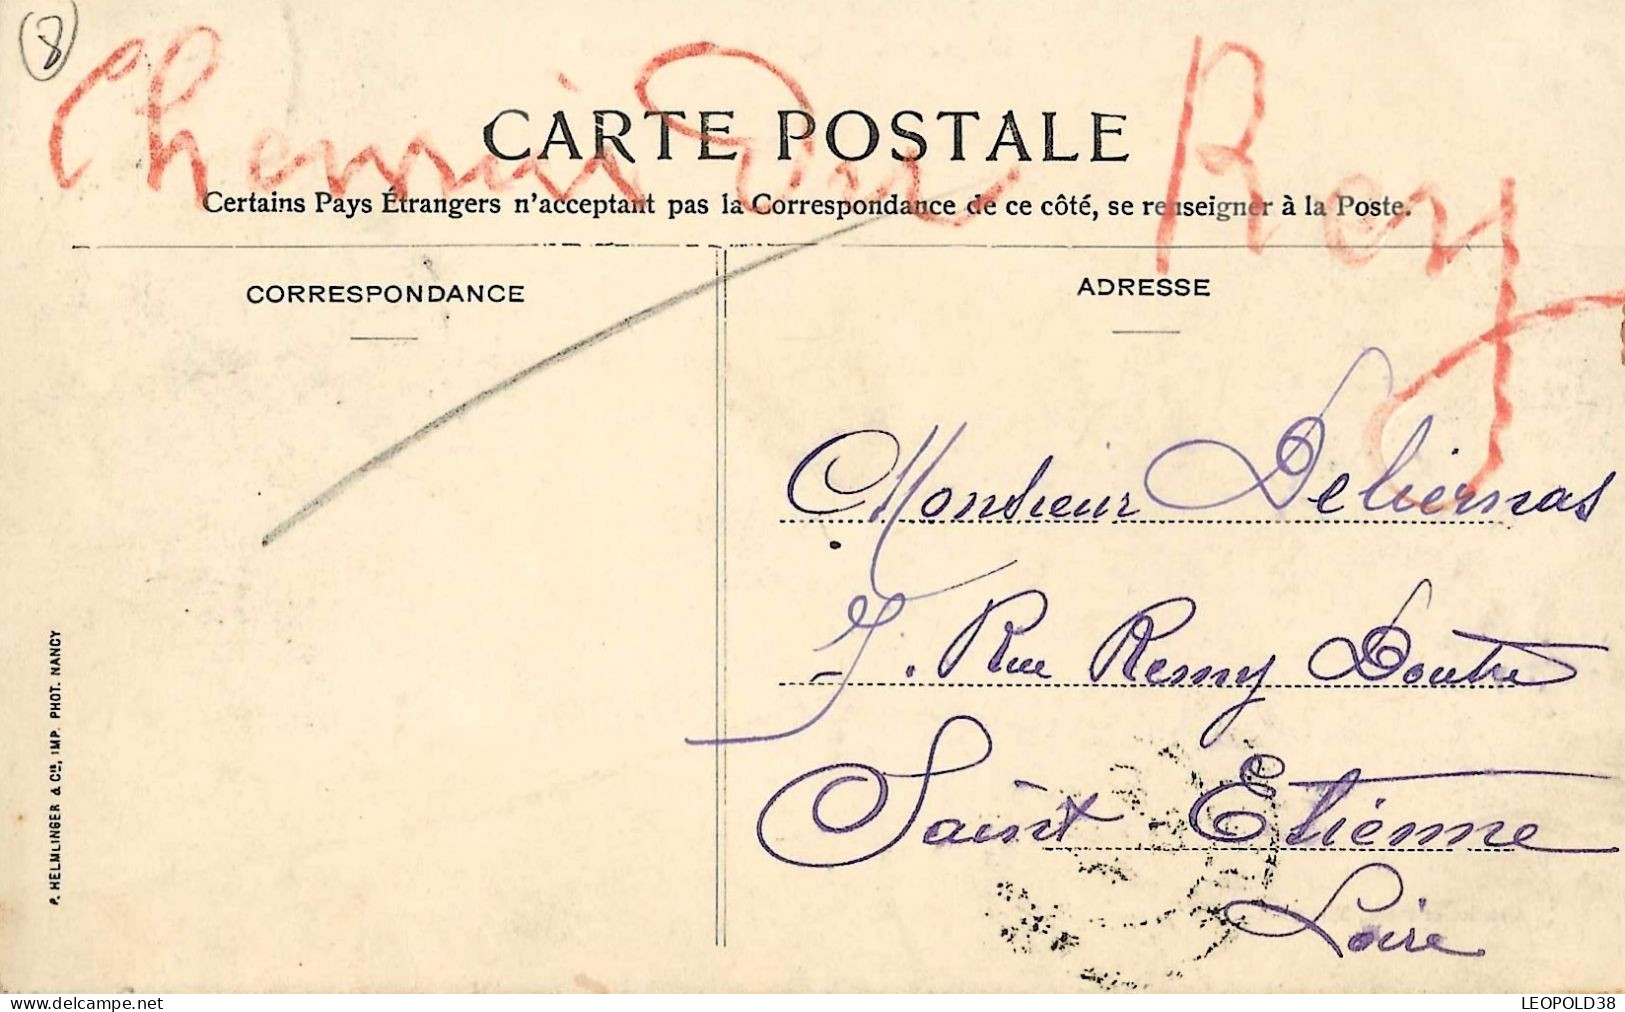 8
Chemin du Rey
CARTE POSTALE
Certains Pays Étrangers n'acceptant pas la Correspondance de ce côté, se renseigner à la Poste.
CORRESPONDANCE
ADRESSE
Monsieur Deliernas
7. Rue Remy Doutre
Saint-Etienne
Loire
P. HELMLINGER & Cie, IMP. PHOT. NANCY
delcampe.net
LEOPOLD38